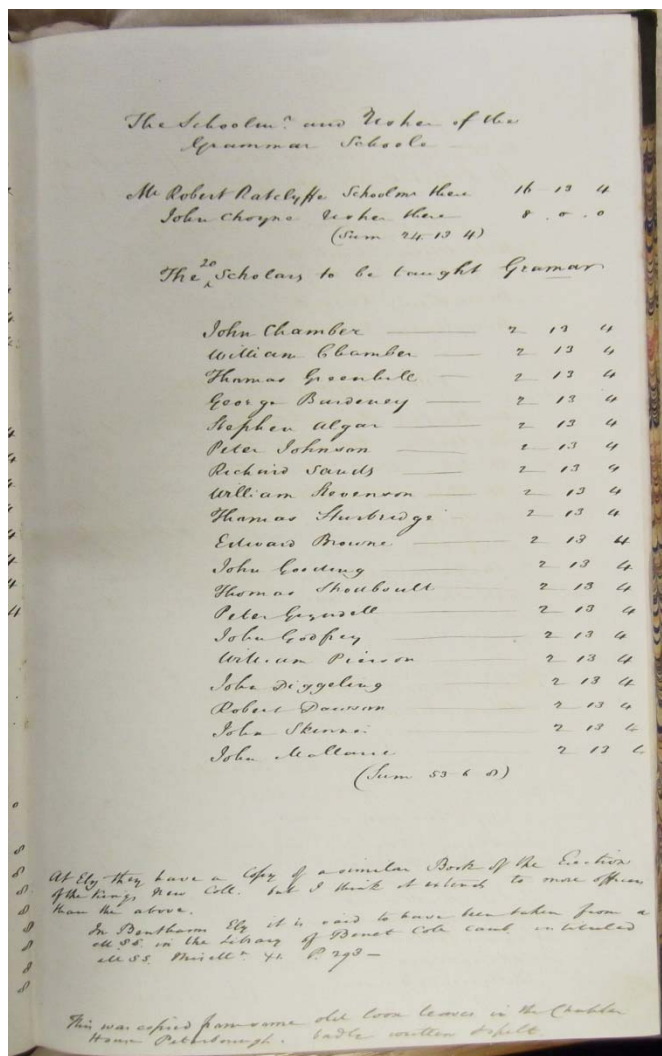 The Schoolmr and Usher of the
Grammar Schole
Mr Robert Ratclyffe Schoolmr there 16 13 4
John Choyne Usher there 8 . 0 . 0
(Sum 24. 13 4)
The 20 Scholars to be taught Gramar
John Chamber 2 13 4
William Chamber 2 13 4
Thomas Greenhill 2 13 4
George Burdeney 2 13 4
Stephen Algar 2 13 4
Peter Johnson 2 13 4
Richard Sands 2 13 4
William Stevenson 2 13 4
Thomas Sturbridge 2 13 4
Edward Browne 2 13 4
John Gooding 2 13 4
Thomas Shotboult 2 13 4
Peter Gryndell 2 13 4
John Godfrey 2 13 4
William Pierson 2 13 4
John Diggeling 2 13 4
Robert Dawson 2 13 4
John Skinner 2 13 4
John Mallarie 2 13 4
(Sum 53 6 8)
At Ely they have a Copy of a similar Book of the Erection
of the Kings New Coll. but I think it extends to more officers
than the above.
In Benthams Ely it is said to have been taken from a
MSS. in the Library of Benet Coll Camb intituled
MSS. Miscell P. 293 —
This was copied from some old loose leaves in the Chapter
House Peterborough. badly written & spelt